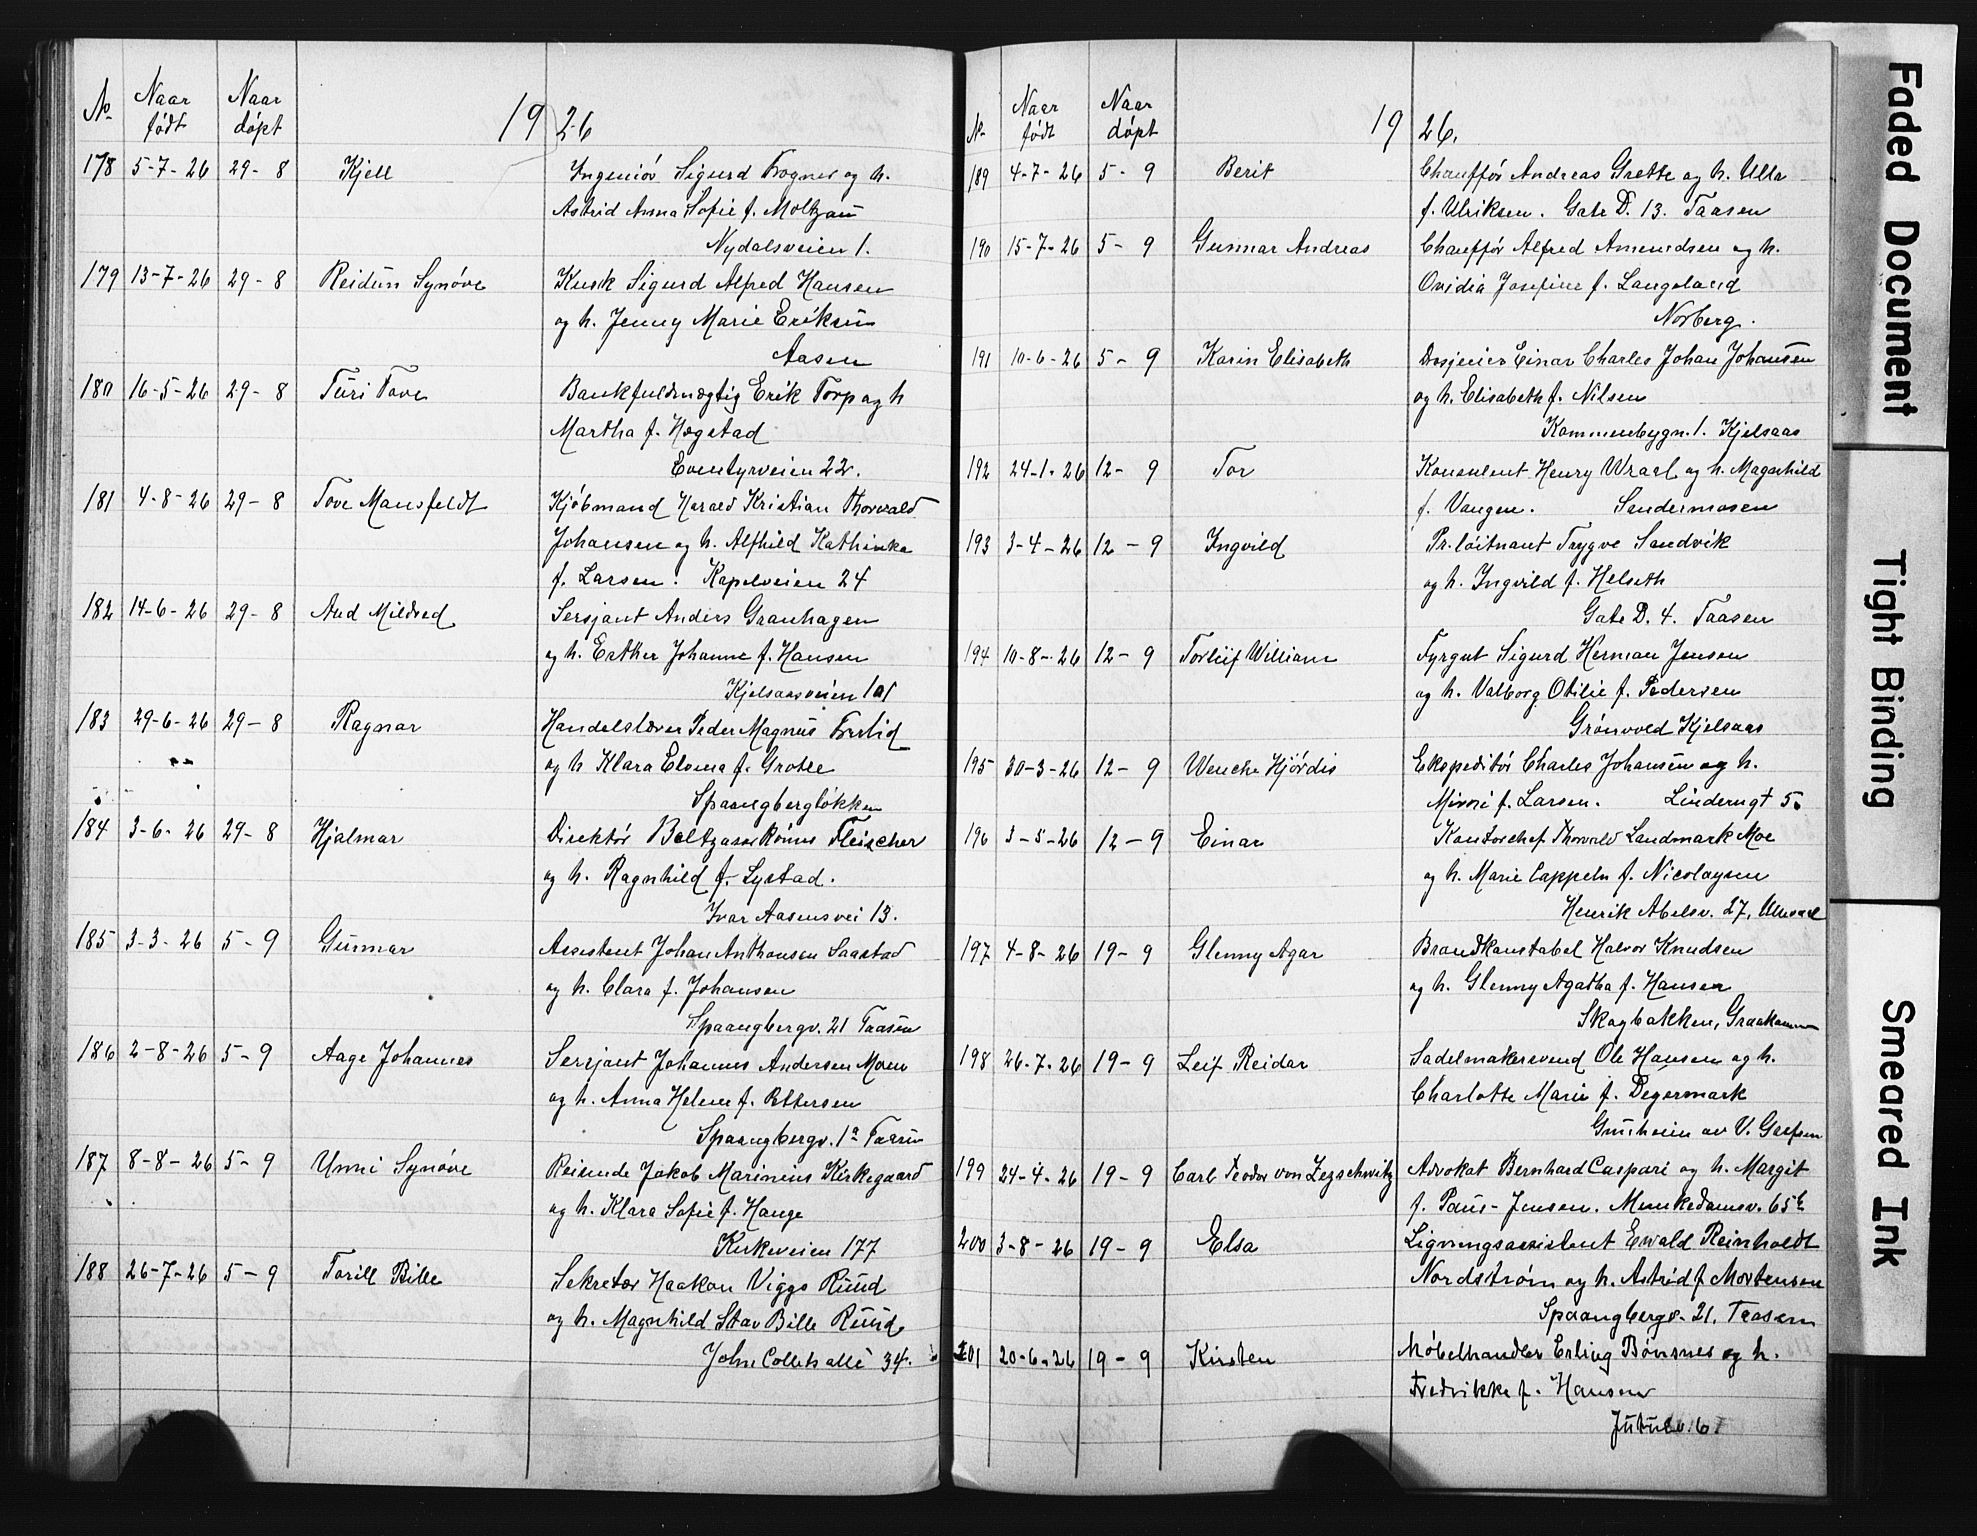 No Naar født Naar døpt 1926
178 5-7-26 29-8 Kjell Ingeniør Sigurd Frogner og h.
Astrid Anna Sofie f. Moltzau
Nydalsveien 1.
179 13-7-26 29-8 Reidun Synøve Kusk Sigurd Alfred Hansen
og h. Jenny Marie Eriksen
Aasen
180 16-5-26 29-8 Turi Tove Bankfuldmægtig Erik Torp og h
Martha f. Hægstad
Eventyrveien 22.
181 4-8-26 29-8 Tove Mansfeldt Kjøbmand Harald Kristian Thorvald
Johansen og h. Alfhild Kathinka
f. Larsen. Kapelveien 24
182 14-6-26 29-8 Aud Mildred Sersjant Anders Granhagen
og h. Esther Johanne f. Hansen
Kjelsaasveien 101
183 29-6-26 29-8 Ragnar Handelslærer Peder Magnus
og h Klara Elvina f. Grotle
Spaangbergløkken
184 3-6-26 29-8 Hjalmar Direktør Baltzasar Fleischer
og h. Ragnhild f. Lystad.
Ivar Aasensvei 13.
185 3-3-26 5-9 Gunnar Assistent Johan Anthonsen Saastad
og h. Clara f. Johansen
Spaangbergv. 21 Taasen
186 2-8-26 5-9 Aage Johannes Sersjant Johannes Andersen Moen
og h. Anna Helene f. Pettersen
Spaangbergv. 1a Taasen
187 8-8-26 5-9 Unni Synøve Reisende Jakob Marinius Kirkegaard
og h. Klara Sofie f. Hauge
Kirkeveien 177
188 26-7-26 5-9 Torill Bille Sekretær Haakon Viggo Ruud
og h. Magnhild Stav Bille Ruud
John Colletts allé 34.
No Naar født Naar døpt 1926.
189 4-7-26 5-9 Berit Chauffør Andreas Grette og h. Ulla
f. Ulriksen. Gate D. 13. Taasen
190 15-7-26 5-9 Gunnar Andreas Chauffør Alfred Amundsen og h.
Ovidia Josefine f. Langeland
Norberg.
191 10-6-26 5-9 Karin Elisabeth Drosjeeier Einar Charles Johan Johansen
og h. Elisabeth f. Nilsen
Kommunebygn. 1. Kjelsaas
192 24-1-26 12-9 Tor Konsulent Henry Wraal og h. Magnhild
f. Vangen. Sandermosen
193 3-4-26 12-9 Ingvild Pr. løitnant Trygve Sandvik
og h. Ingvild f. Helseth
Gate D. 4. Taasen
194 10-8-26 12-9 Torleif William Fyrgut Sigurd Herman Jensen
og h. Valborg Otilie f. Pedersen
Grønvold Kjelsaas
195 30-3-26 12-9 Wenche Hjørdis Ekspeditør Charles Johansen og h.
Mimi f. Larsen. Linderngt 5.
196 3-5-26 12-9 Einar Kontorchef Thorvald Landmark Moe
og h. Marie Cappeln f. Nicolaysen
Henrik Abelsv. 27, Ullevaal
197 4-8-26 19-9 Glenny Agar Brandkonstabel Halvor Knudsen
og h. Glenny Agatha f. Hansen
Skogbakken, Graakammen
198 26-7-26 19-9 Leif Reidar Sadelmakersvend Ole Hansen og h.
Charlotte Marie f. Degermark
av V. Grefsen
199 24-4-26 19-9 Carl Teodor von Zezschwitz Advokat Bernhard Caspari og h. Margit
f. Paus-Jensen. Munkedamsv. 65b
200 3-8-26 19-9 Elsa Ligningsassistent Ewald Reinholdt
Nordstrøm og h. Astrid f Mortensen
Spaangbergv. 21. Taasen
201 20-6-26 19-9 Kirsten Møbelhandler Erling Bønsnes og h.
Fredrikke f. Hansen
Jutulv. 6
Faded Document
Tight Binding
Smeared Ink